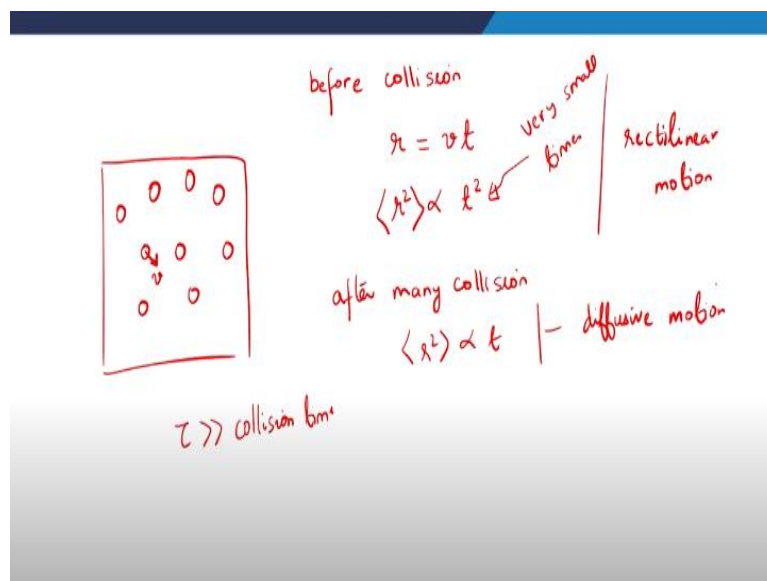 before collision
r = vt
very small times
⟨r²⟩ ∝ t²
rectilinear
motion
v
after many collision
⟨r²⟩ ∝ t
diffusive motion
τ >> collision time